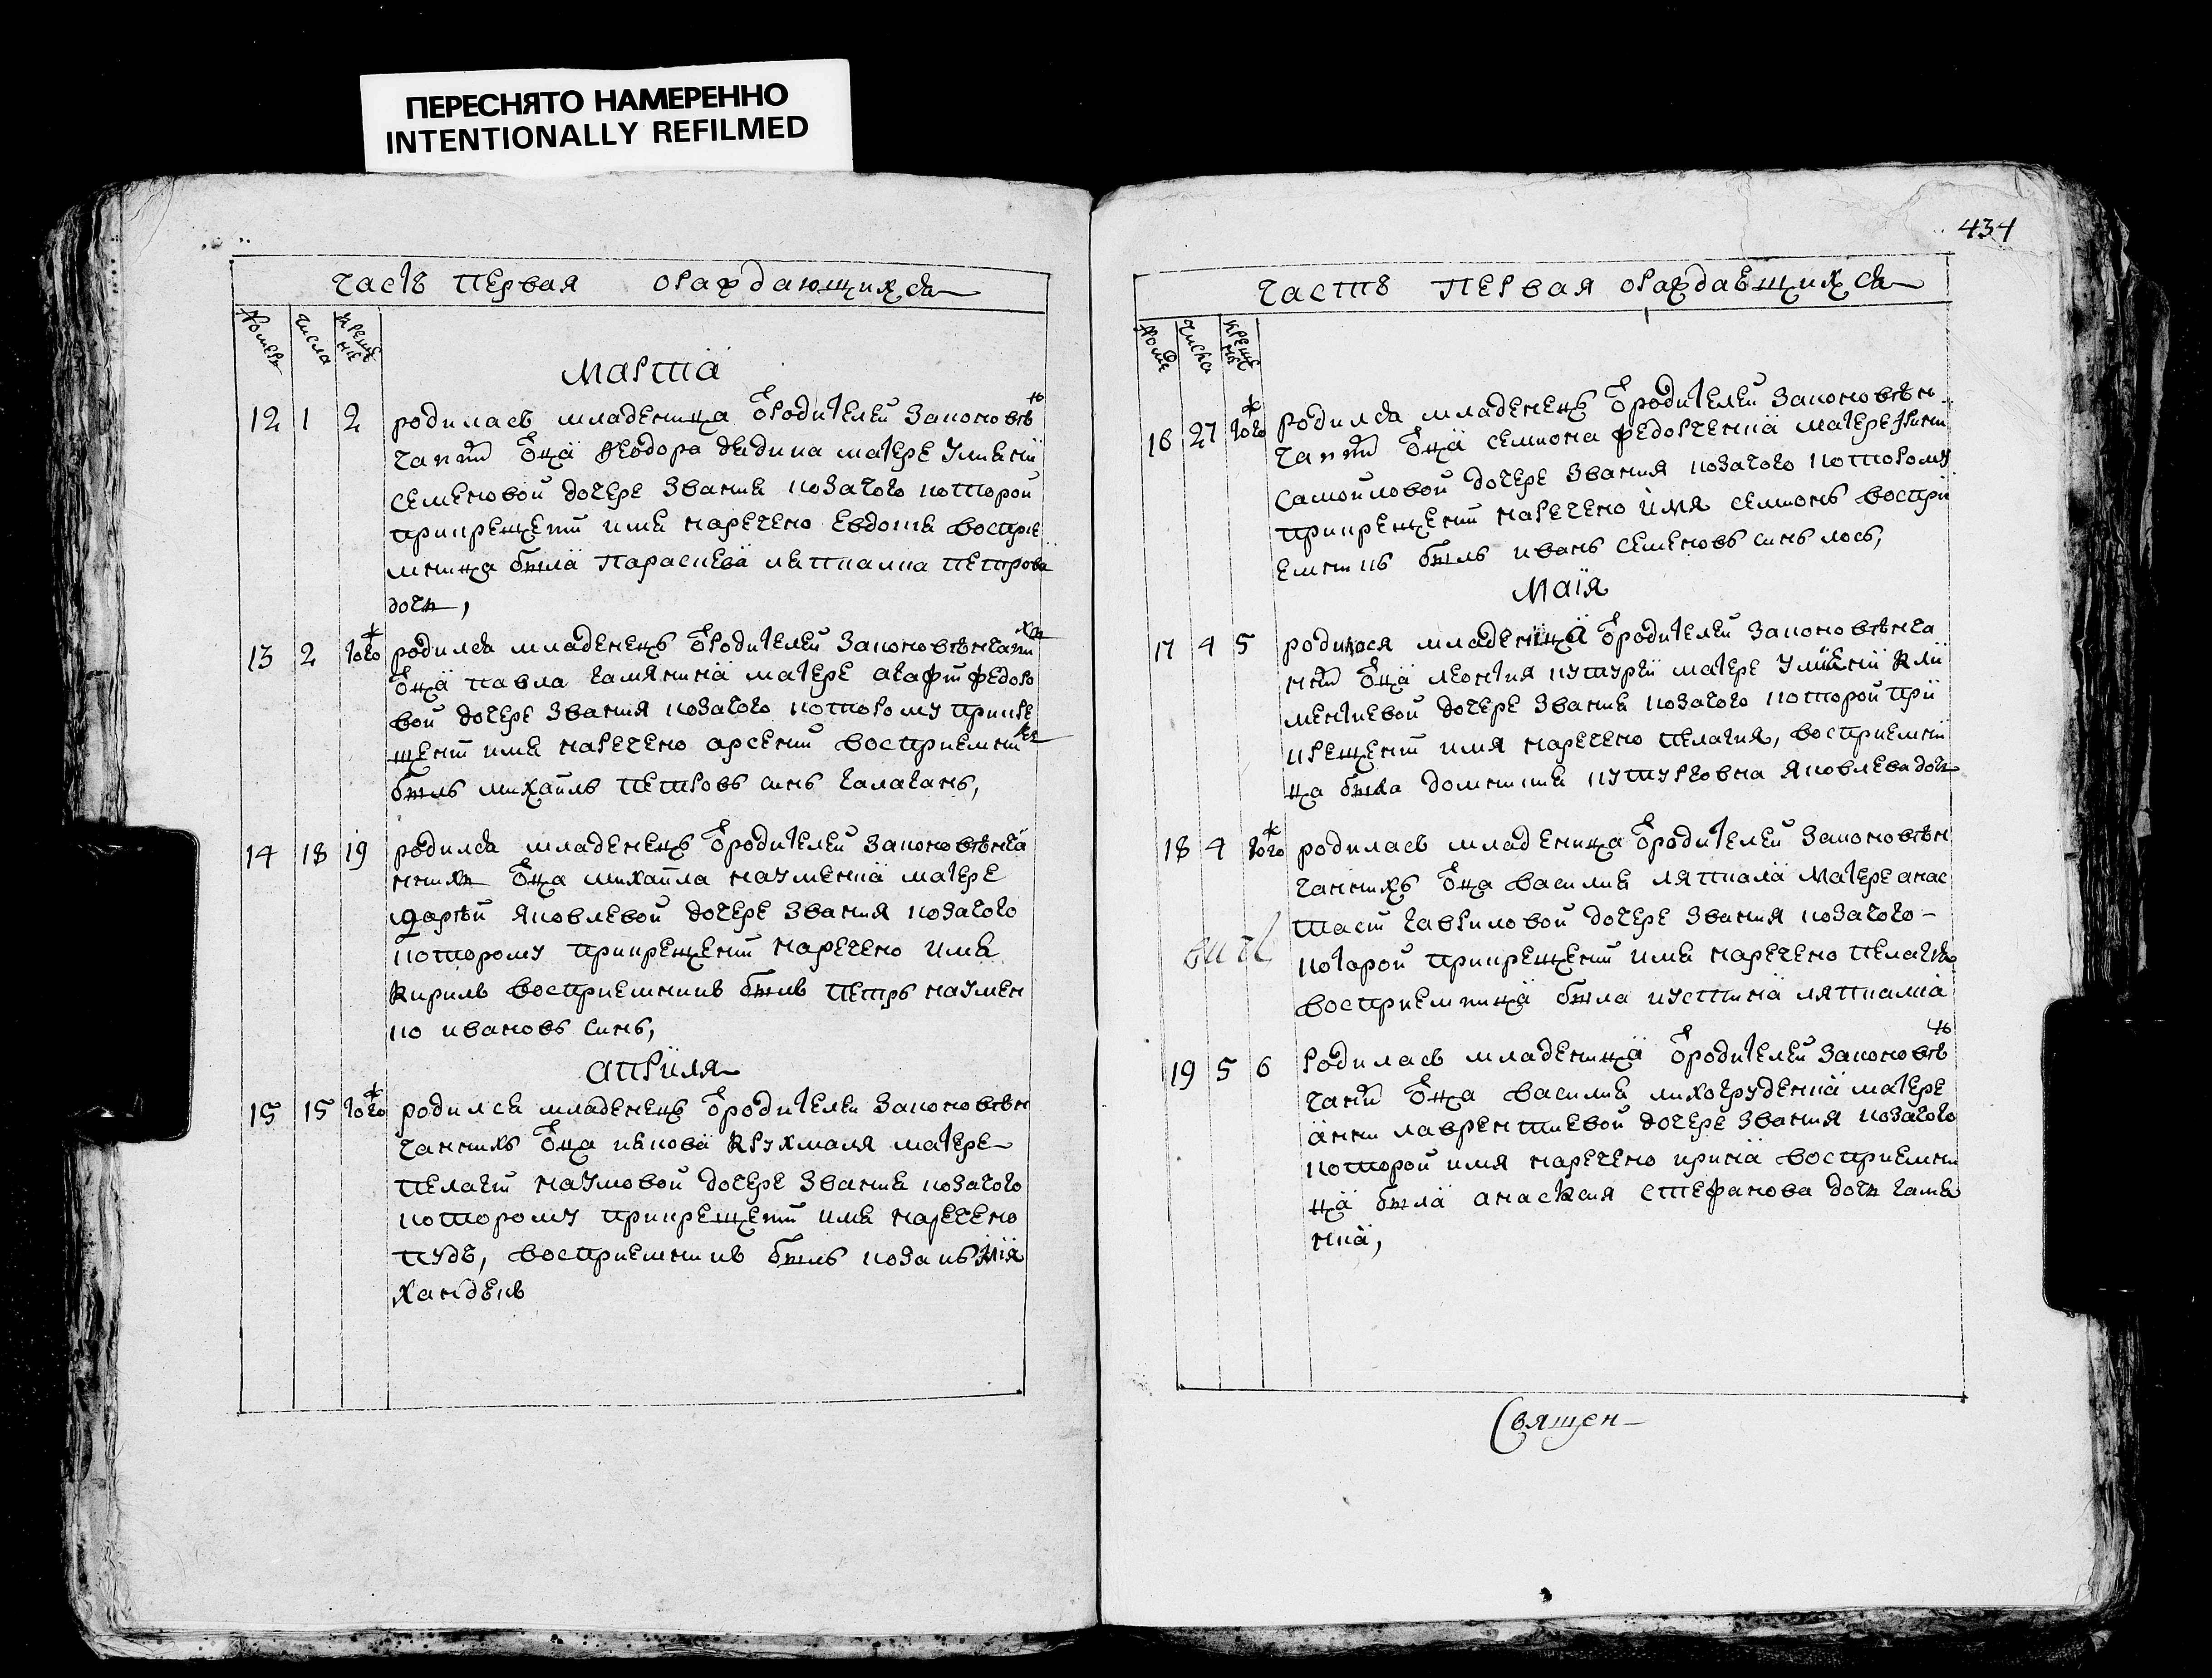 ПЕРЕСНЯТО НАМЕРЕННО
INTENTIONALLY REFILMED
434
часть первая ораждающихся
Номеръ числа креще ние
марта
12 1 2 родилась младеница ѿ родителей законовѣн
чаных ѿца Феодора дядика матере Улияни
семеновой дочере звания козачого которой
прикрещении имя наречено Евдокия восприе
мница была Параскева ляпкалка петрова
дочъ,
13 2 того ж родился младенецъ ѿ родителей законовѣнчаных
ѿца павла гамянина матере агафии федоро
вой дочере звания козачого которому прикре
щении имя наречено арсений восприемник
былъ михаилъ петровъ синъ галаганъ,
14 18 19 родился младенецъ ѿ родителей законовѣнча
нныхъ ѿца михаила науменка матере
дарѣи яковлевой дочере звания козачого
которому прикрещении наречено имя
Кирилъ восприемникъ былъ петръ наумен
ко ивановъ синъ,
априля
15 15 того ж родился младенецъ ѿ родителей законовѣн
чанныхъ ѿца иякова Крухмаля матере
пелагии наумовой дочере звания козачого
которому прикрещении имя наречено
пудъ, восприемникъ былъ козакъ
часть первая ораждаещихся
Номе числа креще ние
16 27 того ж родился младенецъ ѿ родителей законовѣн
чаных ѿца семиона федорченка матере Ирини
самойловой дочере звания козачого которому
прикрещении наречено имя семионъ воспри
емникъ былъ иванъ семеновъ синъ лось,
маія
17 4 5 родилася младеница ѿ родителей законовѣнча
ных ѿца леонтия кутургы матере Улияни Кли
ментиевой дочере звания козачого которой при
крещении имя наречено пелагия, восприемни
ца была домникия кутурговна яковлева дочъ
18 4 того ж родилась младеница ѿ родителей законовѣн
чаннихъ ѿца василия ляпкала матере анас
тасии гавриловой дочере звания козачого
которой прикрещении имя наречено пелагия
восприемница была иустина ляпкалка
19 5 6 родилась младеница ѿ родителей законовѣн
чаных ѿца василия лихогруденка матере
анни лаврентиевой дочере звания козачого
которой имя наречено ирина восприемни
ца была анастасия стефанова дочъ гамя
нка,
Священ